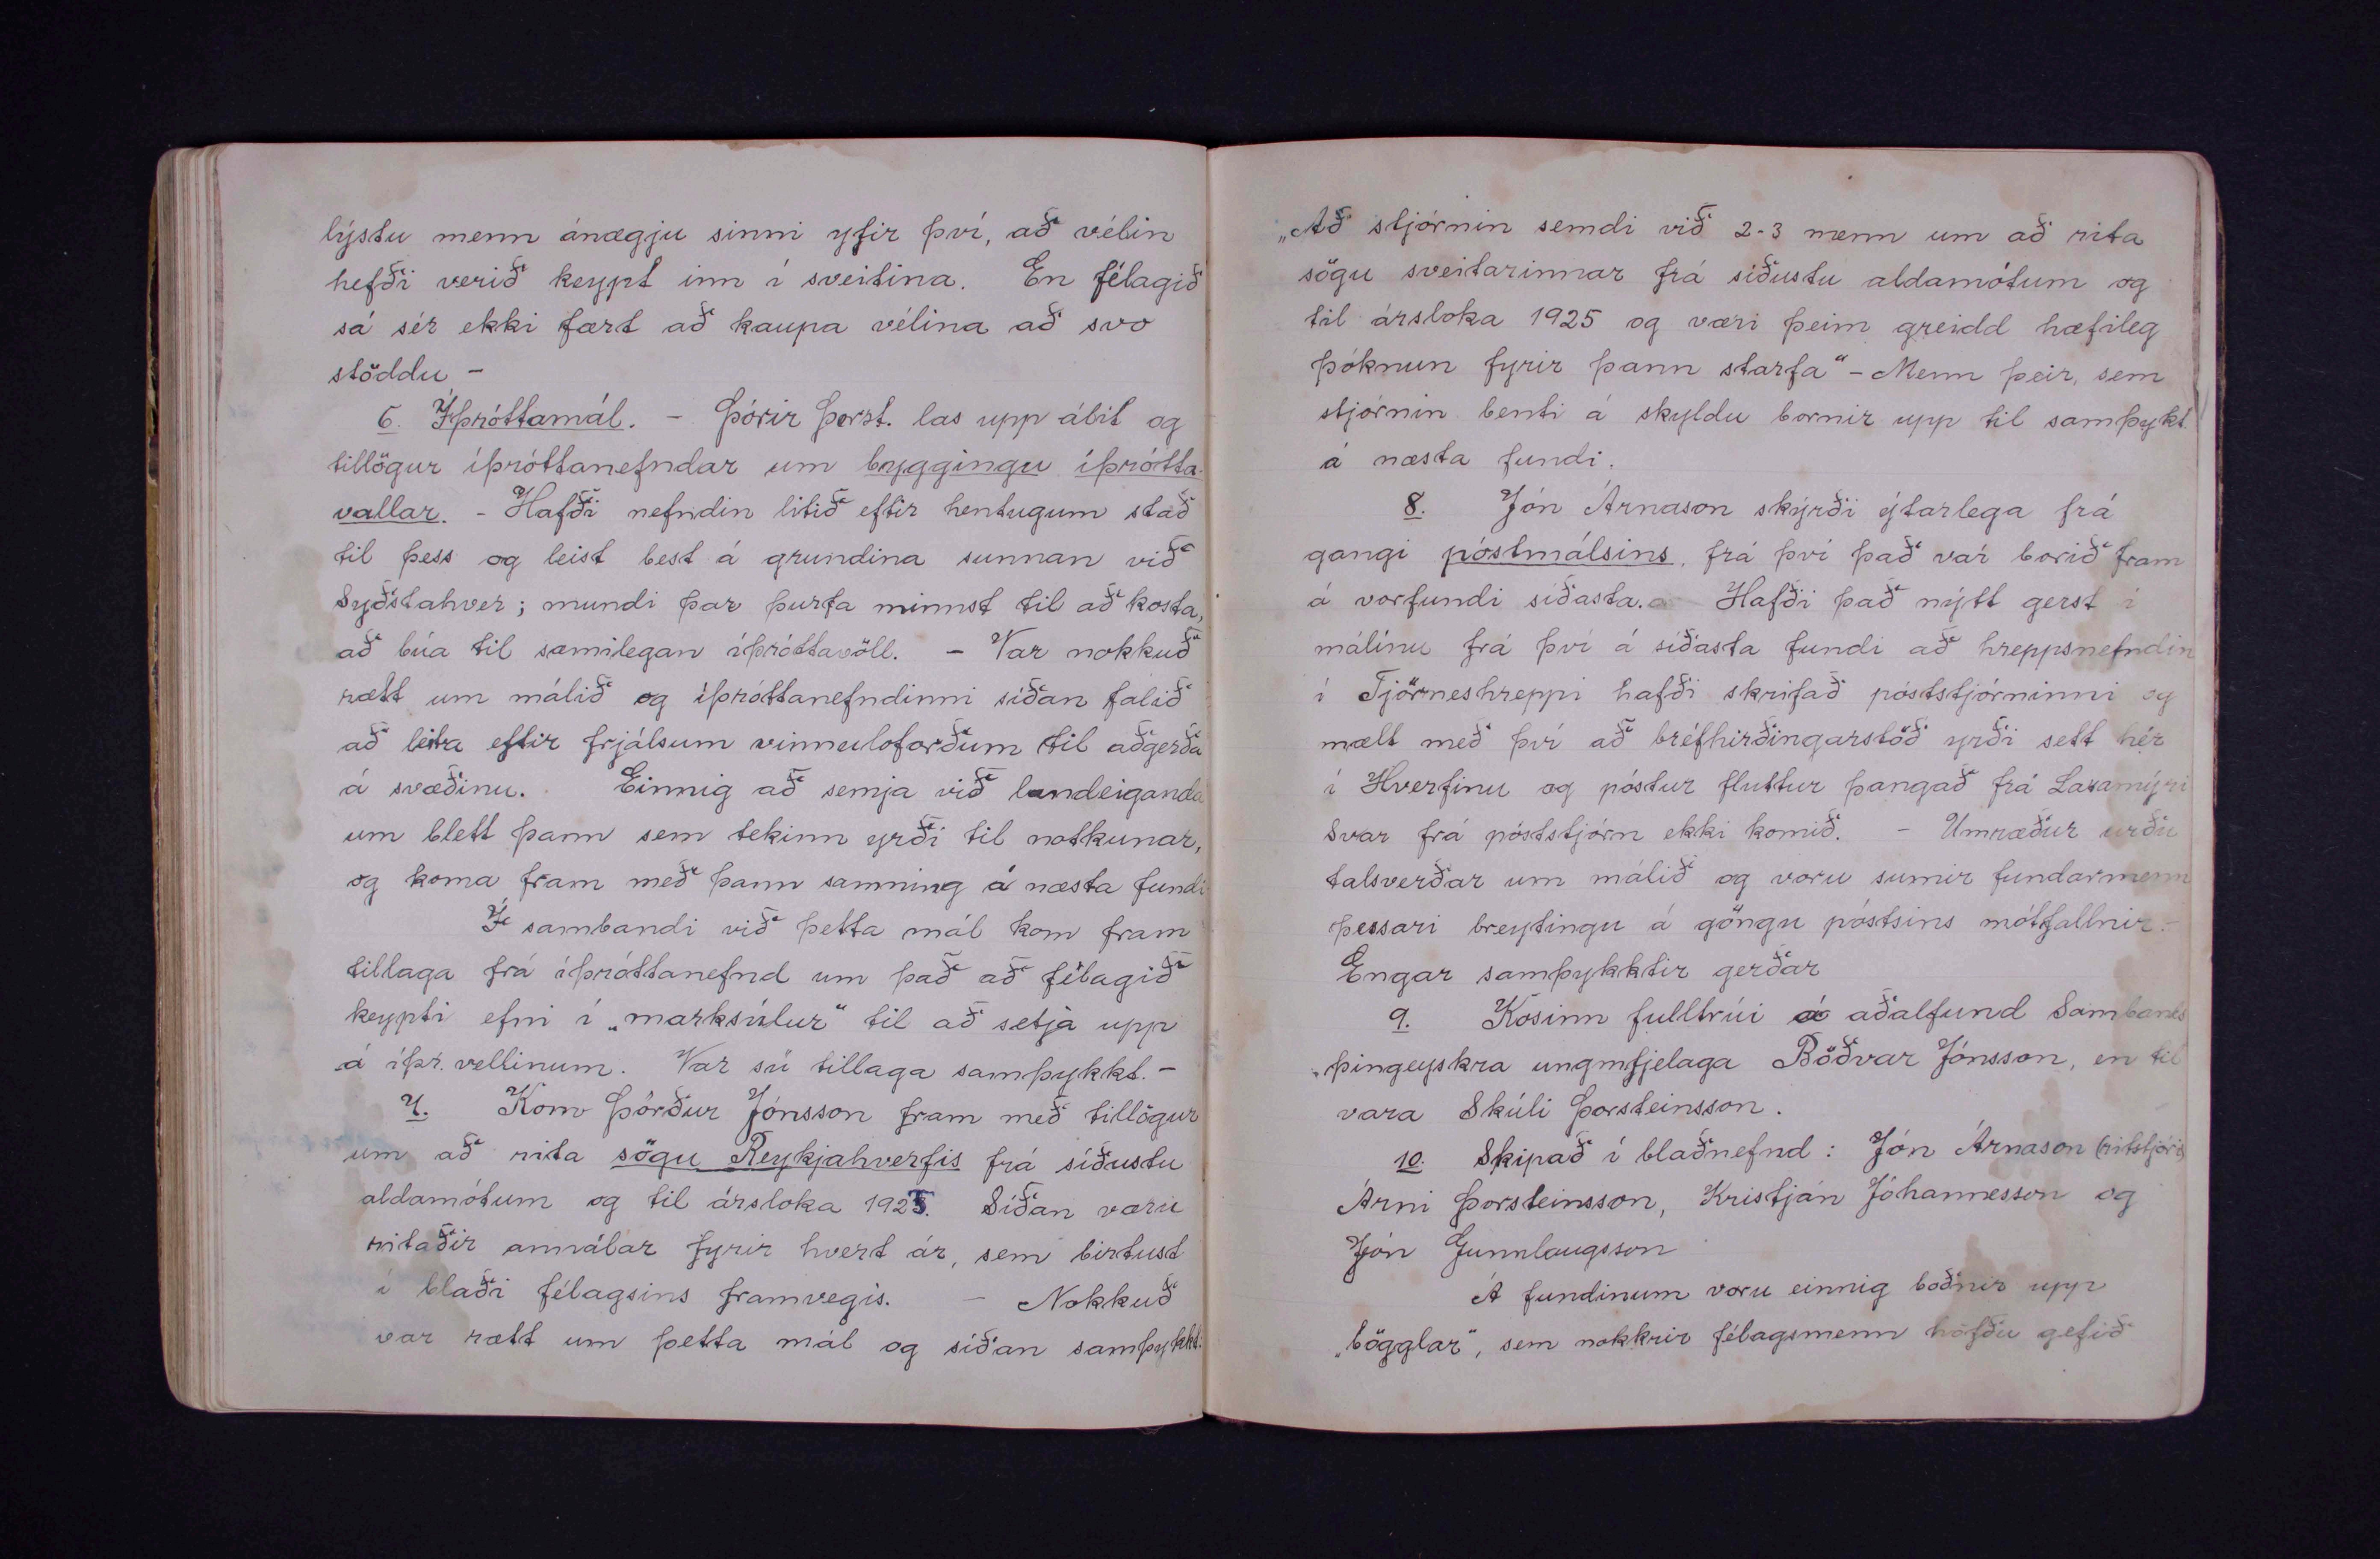 lýstu menn ánægju sinni yfir því, að vélin
hefði verið keypt inn í sveitina. En félagið
sá sér ekki fært að kaupa vélina að svo
stöddu -
6. Íþróttamál. - Þórir Þorst. las upp álit og
tillögur íþróttanefndar um byggingu íþrótta-
vallar. - Hafði nefndin litið eftir hentugum stað
til þess og leist best á grundina sunnan við
Syðstahver; mundi þar þurfa minnst til að kosta,
að búa til sæmilegan íþróttavöll. - Var nokkuð
rætt um málið og íþróttanefndinni síðan falið
að leita eftir frjálsum vinnuloforðum til aðgerða
á svæðinu. Einnig að semja við landeiganda
um blett þann sem tekinn yrði til notkunar,
og koma fram með þann samning á næsta fundi
Í sambandi við þetta mál kom fram
tillaga frá íþróttanefnd um það að félagið
keypti efni í „marksúlur“ til að setja upp
á íþr. vellinum. Var sú tillaga samþykkt. -
7. Kom Þórður Jónsson fram með tillögur
um að rita sögu Reykjahverfis frá síðustu
aldamótum og til ársloka 1925. Síðan væru
ritaðir annálar fyrir hvert ár, sem birtust
í blaði félagsins framvegis. - Nokkuð
var rætt um þetta mál og síðan samþykkt:
„Að stjórnin semdi við 2-3 menn um að rita
sögu sveitarinnar frá síðustu aldamótum og
til ársloka 1925 og væri þeim greidd hæfileg
þóknun fyrir þann starfa“ - Menn þeir, sem
stjórnin benti á skyldu bornir upp til samþykt
á næsta fundi.
8. Jón Árnason skýrði ýtarlega frá
gangi póstmálsins, frá því það var borið fram
á vorfundi síðasta. Hafði það nýtt gerst í
málinu frá því á síðasta fundi að hreppsnefndin
í Tjörneshreppi hafði skrifað póststjórninni og
mælt með því að bréfhirðingarstöð yrði sett hér
í Hverfinu og póstur fluttur þangað frá Laxamýri
Svar frá póststjórn ekki komið. - Umræður urðu
talsverðar um málið og voru sumir fundarmenn
þessari breytingu á göngu póstsins mótfallnir. -
Engar samþykktir gerðar
9. Kosinn fulltrúi á aðalfund Sambands
þingeyskra ungmfjelaga Böðvar Jónsson, en til
vara Skúli Þorsteinsson.
10. Skipað í blaðnefnd: Jón Árnason (ritstjóri)
Árni Þorsteinsson, Kristján Jóhannesson og
Jón Gunnlaugsson
Á fundinum voru einnig boðnir upp
„bögglar“, sem nokkrir félagsmenn höfðu gefið